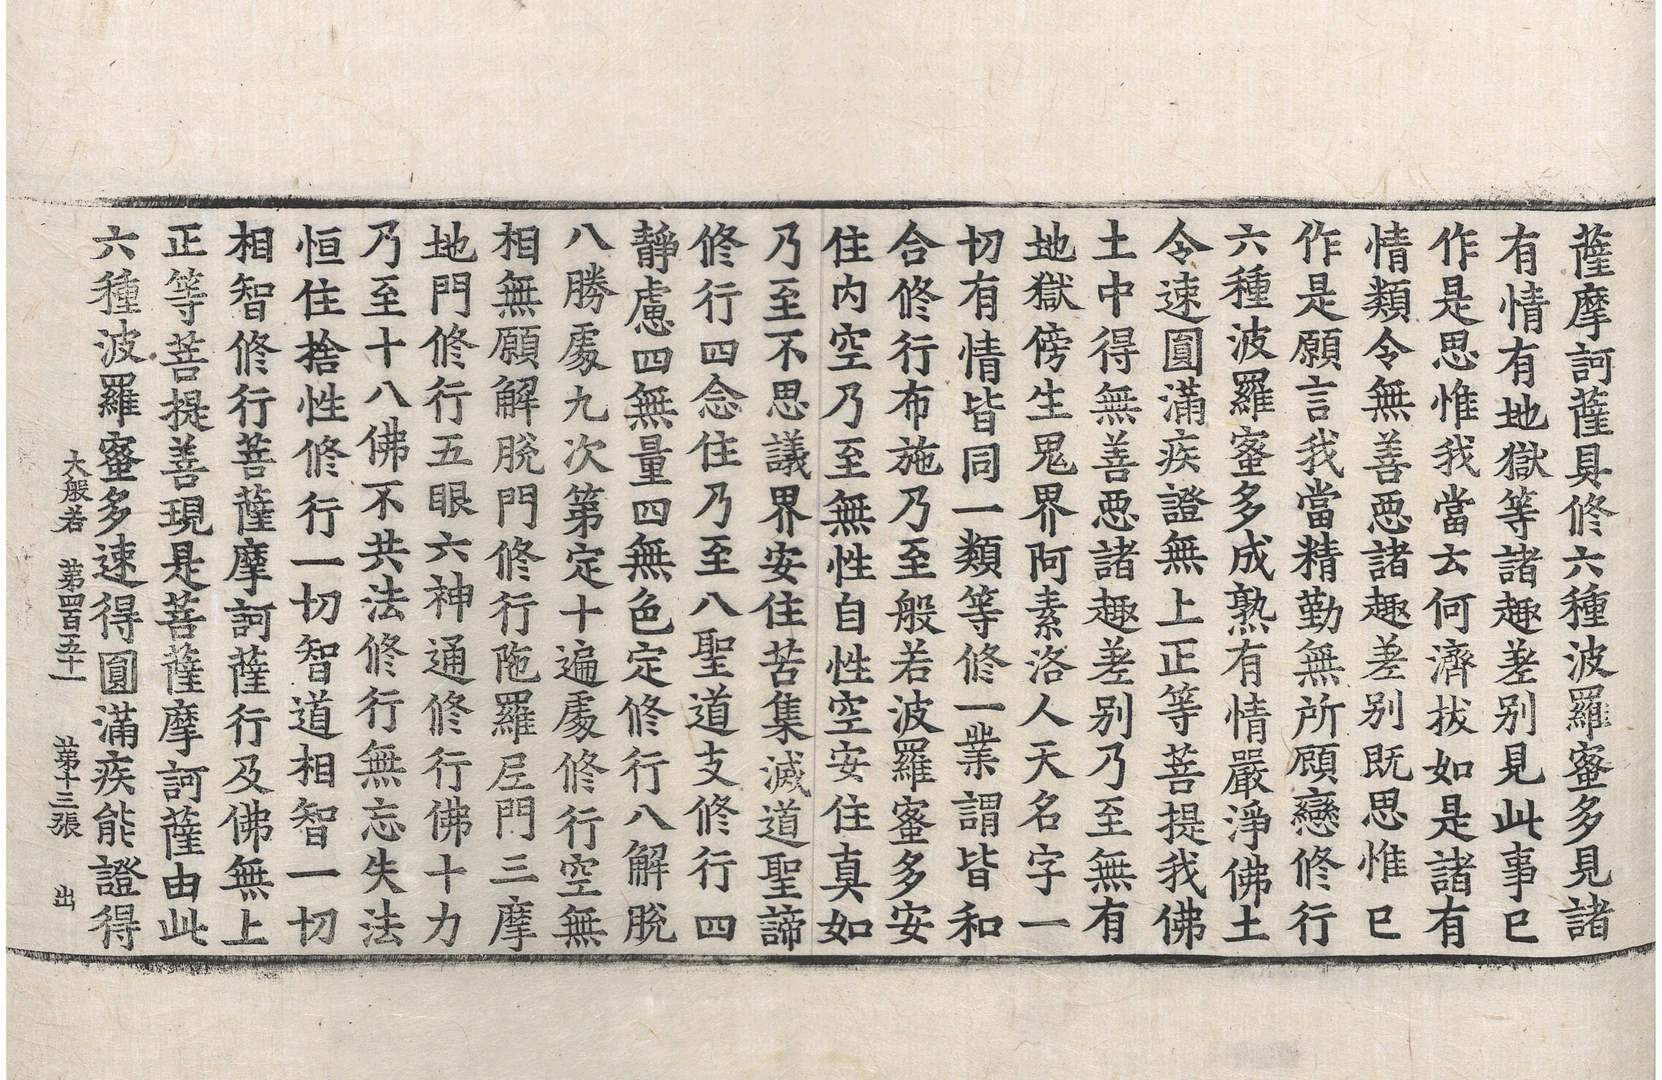 薩摩訶薩具修六種波羅蜜多見諸
有情有地獄等諸趣差別見此事已
作是思惟我當云何濟拔如是諸有
情類令無善惡諸趣差別既思惟已
作是願言我當精勤無所顧戀修行
六種波羅蜜多成熟有情嚴淨佛土
令速圓滿疾證無上正等菩提我佛
土中得無善惡諸趣差別乃至無有
地獄傍生鬼界阿素洛人天名字一
切有情皆同一類等修一業謂皆和
合修行布施乃至般若波羅蜜多安
住內空乃至無性自性空安住真如
乃至不思議界安住苦集滅道聖諦
修行四念住乃至八聖道支修行四
靜慮四無量四無色定修行八解脫
八勝處九次第定十遍處修行空無
相無願解脫門修行陁羅尼門三摩
地門修行五眼六神通修行佛十力
乃至十八佛不共法修行無忘失法
恒住捨性修行一切智道相智一切
相智修行菩薩摩訶薩行及佛無上
正等菩提善現是菩薩摩訶薩由此
六種波羅蜜多速得圓滿疾能證得
大般若 第四百五十一 第十三張 出